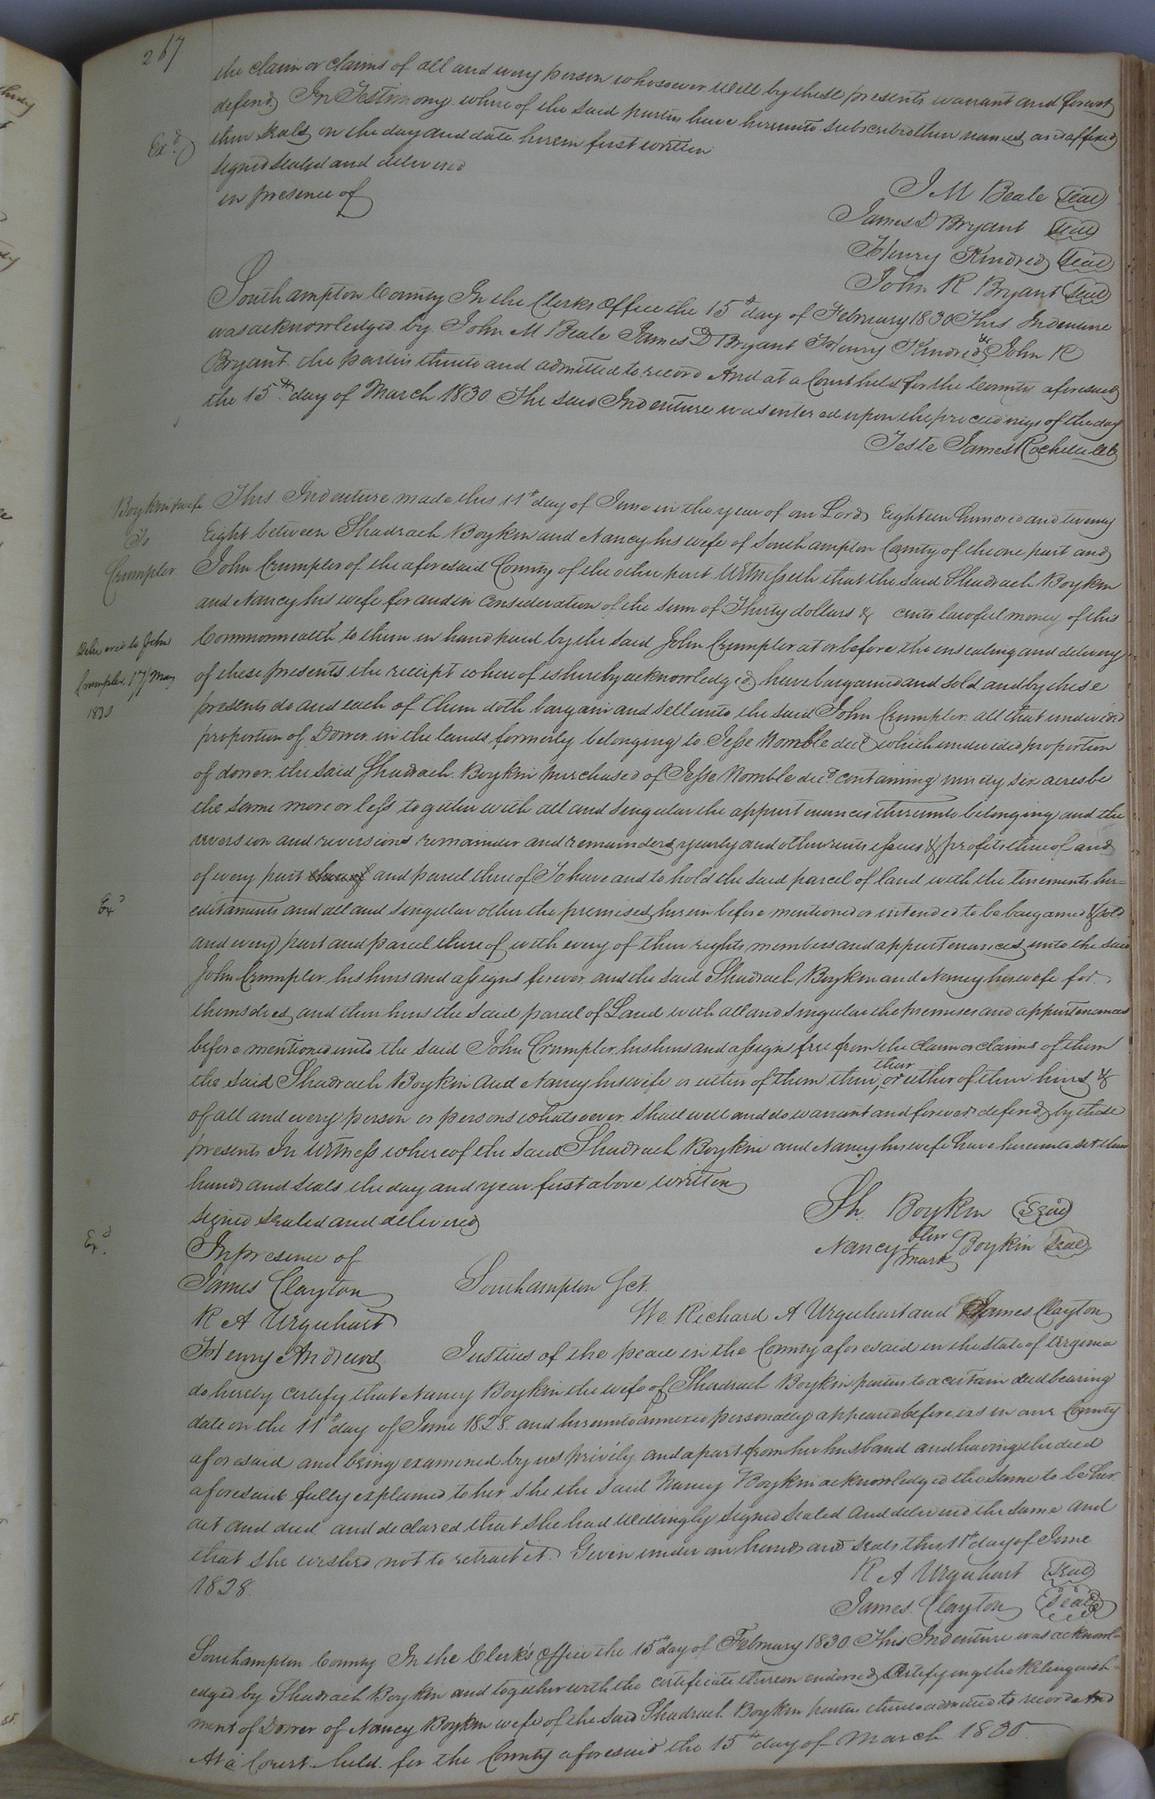 267
the claim or claims of all and every person whosoever will by these presents warrant and forever
defend In Testimony whereof the said parties have hereunto subscribed their names and affixed
Exd.
their seals on the day and date herein first written
signed sealed and delivered
in presence of
J M Beale (seal)
James D Bryant (seal)
Henry Kindred (seal)
John R Bryant (seal)
Southampton County In the Clerks Office the 15th day of February 1830 This Indenture
was acknowledged by John M Beale James D Bryant Henry Kindred & John R
Bryant the parties thereto and admitted to record And at a Court held for the County aforesaid
the 15th day of March 1830 The said Indenture was entered upon the proceedings of the day
Teste James Rochelle clk
Boykin & wife
To
Crumpler
This Indenture made this 11th day of June in the year of our Lord Eighteen hundred and twenty
Eight between Shadrach Boykin and Nancy his wife of Southampton County of the one part and
John Crumpler of the aforesaid County of the other part Witnesseth that the said Shadrach Boykin
and Nancy his wife for and in consideration of the sum of Thirty dollars & cents lawful money of this
Delivered to John
Crumpler 17 May
Commonwealth to them in hand paid by the said John Crumpler at or before the ensealing and delivery
of these presents the receipt whereof is hereby acknowledged have bargained and sold and by these
presents do and each of them doth bargain and sell unto the said John Crumpler all that undivided
proportion of Dower in the lands formerly belonging to Jesse Womble decd which undivided proportion
of dower the said Shadrach Boykin purchased of Jesse Womble decd containing ninety six acres be
the same more or less together with all and singular the appurtenances thereunto belonging and the
reversion and reversions remainder and remainders yearly and other rents issues & profits thereof and
of every part thereof and parcel thereof To have and to hold the said parcel of land with the tenements her=
Exd
editaments and all and singular other the premises herein before mentioned or intended to be bargained & sold
and every part and parcel thereof with every of their rights members and appurtenances unto the said
John Crumpler his heirs and assigns forever and the said Shadrach Boykin and Nancy his wife for
themselves and their heirs the said parcel of Land with all and singular the premises and appurtenances
before mentioned unto the said John Crumpler his heirs and assigns free from the claim or claims of them
the said Shadrach Boykin and Nancy his wife or either of them their, their or either of their heirs &
of all and every person or persons whatsoever shall well and do warrant and forever defend by these
presents In Witness whereof the said Shadrach Boykin and Nancy his wife have hereunto set their
hands and seals the day and year first above written
signed sealed and delivered
Exd.
In presence of
James Clayton
R A Urquhart
Henry Andrews
Sh. Boykin (seal)
Nancy her mark Boykin (seal)
Southampton Sct.
We Richard A Urquhart and James Clayton
Justices of the peace in the County aforesaid in the state of Virginia
do hereby certify that Nancy Boykin the wife of Shadrach Boykin parties to a certain deed bearing
date on the 11th day of June 1828 and hereunto annexed personally appeared before us in our County
aforesaid and being examined by us privily and apart from her husband and having the deed
aforesaid fully explained to her she the said Nancy Boykin acknowledged the same to be her
act and deed and declared that she had willingly signed sealed and delivered the same and
that she wished not to retract it Given under our hands and seals this 11th day of June
1828
R A Urquhart (seal)
James Clayton (seal)
Southampton County In the Clerk's Office the 15th day of February 1830 This Indenture was acknowl=
edged by Shadrach Boykin and together with the certificate thereon endorsed Certifying the Relinquish=
ment of Dower of Nancy Boykin wife of the said Shadrach Boykin parties thereto admitted to record And
At a Court held for the County aforesaid the 15th day of March 1830